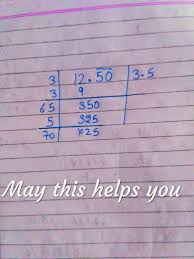 3 | 12.50 | 3.5
3 | 9
65 | 350
5 | 325
70 | 025
May this helps you